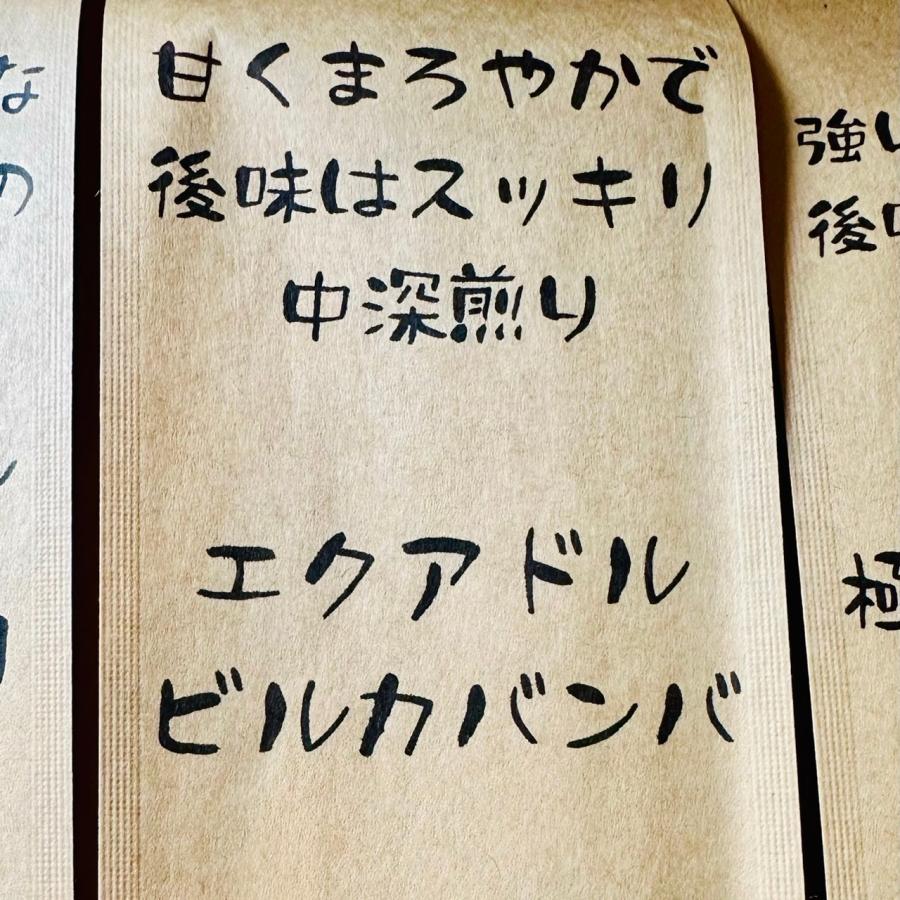 甘くまろやかで
後味はスッキリ
中深煎り
エクアドル
ビルカバンバ
な
の
強い
後
極